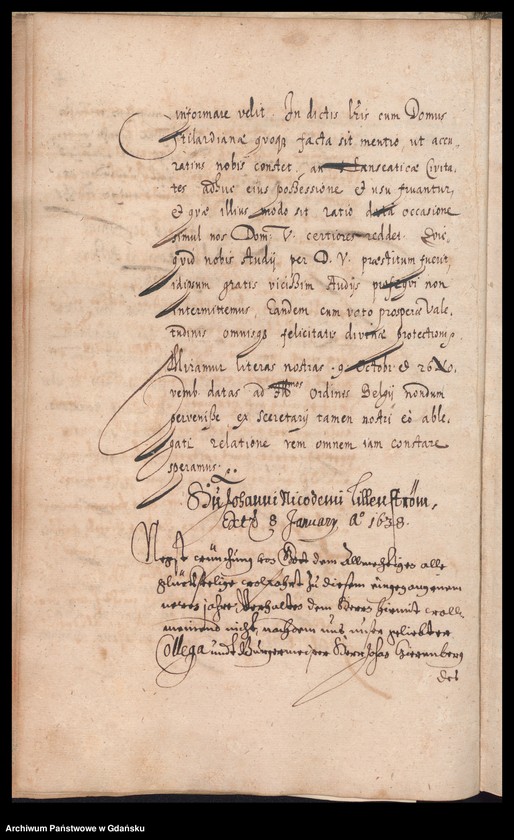 informare velit. In dictis lr̃is cum Domus
Stilardianæ quoq̃ facta sit mentio, ut accu-
ratius nobis constet, an Hanseaticæ Civita-
tes adhuc eius possessione et usu fruantur,
et quæ illius modo sit ratio data occasione
simul nos Dom: V. certiores reddet. Quic-
quid nobis studij per D. V. præstitum fuerit,
id ipsum gratis vicissim studijs prosequi non
intermittemus, Eandem cum voto prosperæ Vale-
tudinis omnisq̃ felicitatis divinæ protectioni
Miramur literas nostras 9 Octobr: et 26 No-
vemb. datas ad Ordines Belgij nondum
pervenisse ex Secretarij tamen nostri eò able-
gati relatione rem omnem iam constare
speramus.
Johanni Nicodemi Lillenström,
8 January Aº 1638.
Negst wünschung von Gott dem Allmechtigen alle
glückseelige wolfahrt zu diesem eingegangenem
newen jahre, Verhalten dem Herrn hiemit woll-
meinend nicht, nachdem uns unser geliebter
Collega undt Bürgermeister Herr Johan
des
Archiwum Państwowe w Gdańsku